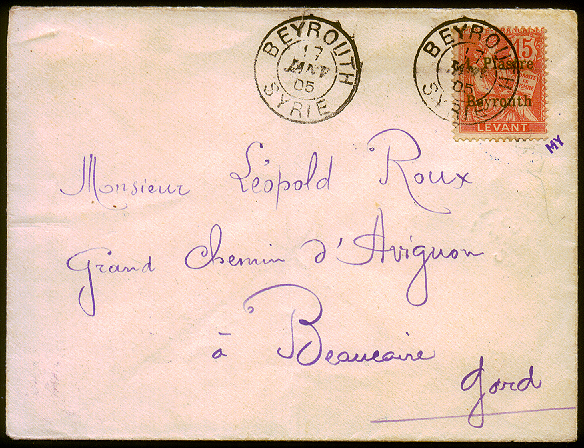 BEYROUTH
17
JANV
05
SYRIE
BEYROUTH
17
JANV
05
SYRIE
15
1 Piastre
Beyrouth
LEVANT
MY
Monsieur Léopold Roux
Grand Chemin d'Avignon
à Beaucaire
Gard